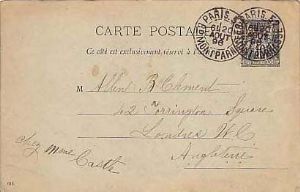 CARTE POSTALE
Ce côté est exclusivement réservé à l'
PARIS
6E
AOUT
MONTPARNASSE
M Albert B Clement
42 Torrington Square
Londres W.C
Angleterre
chez Mme Castle